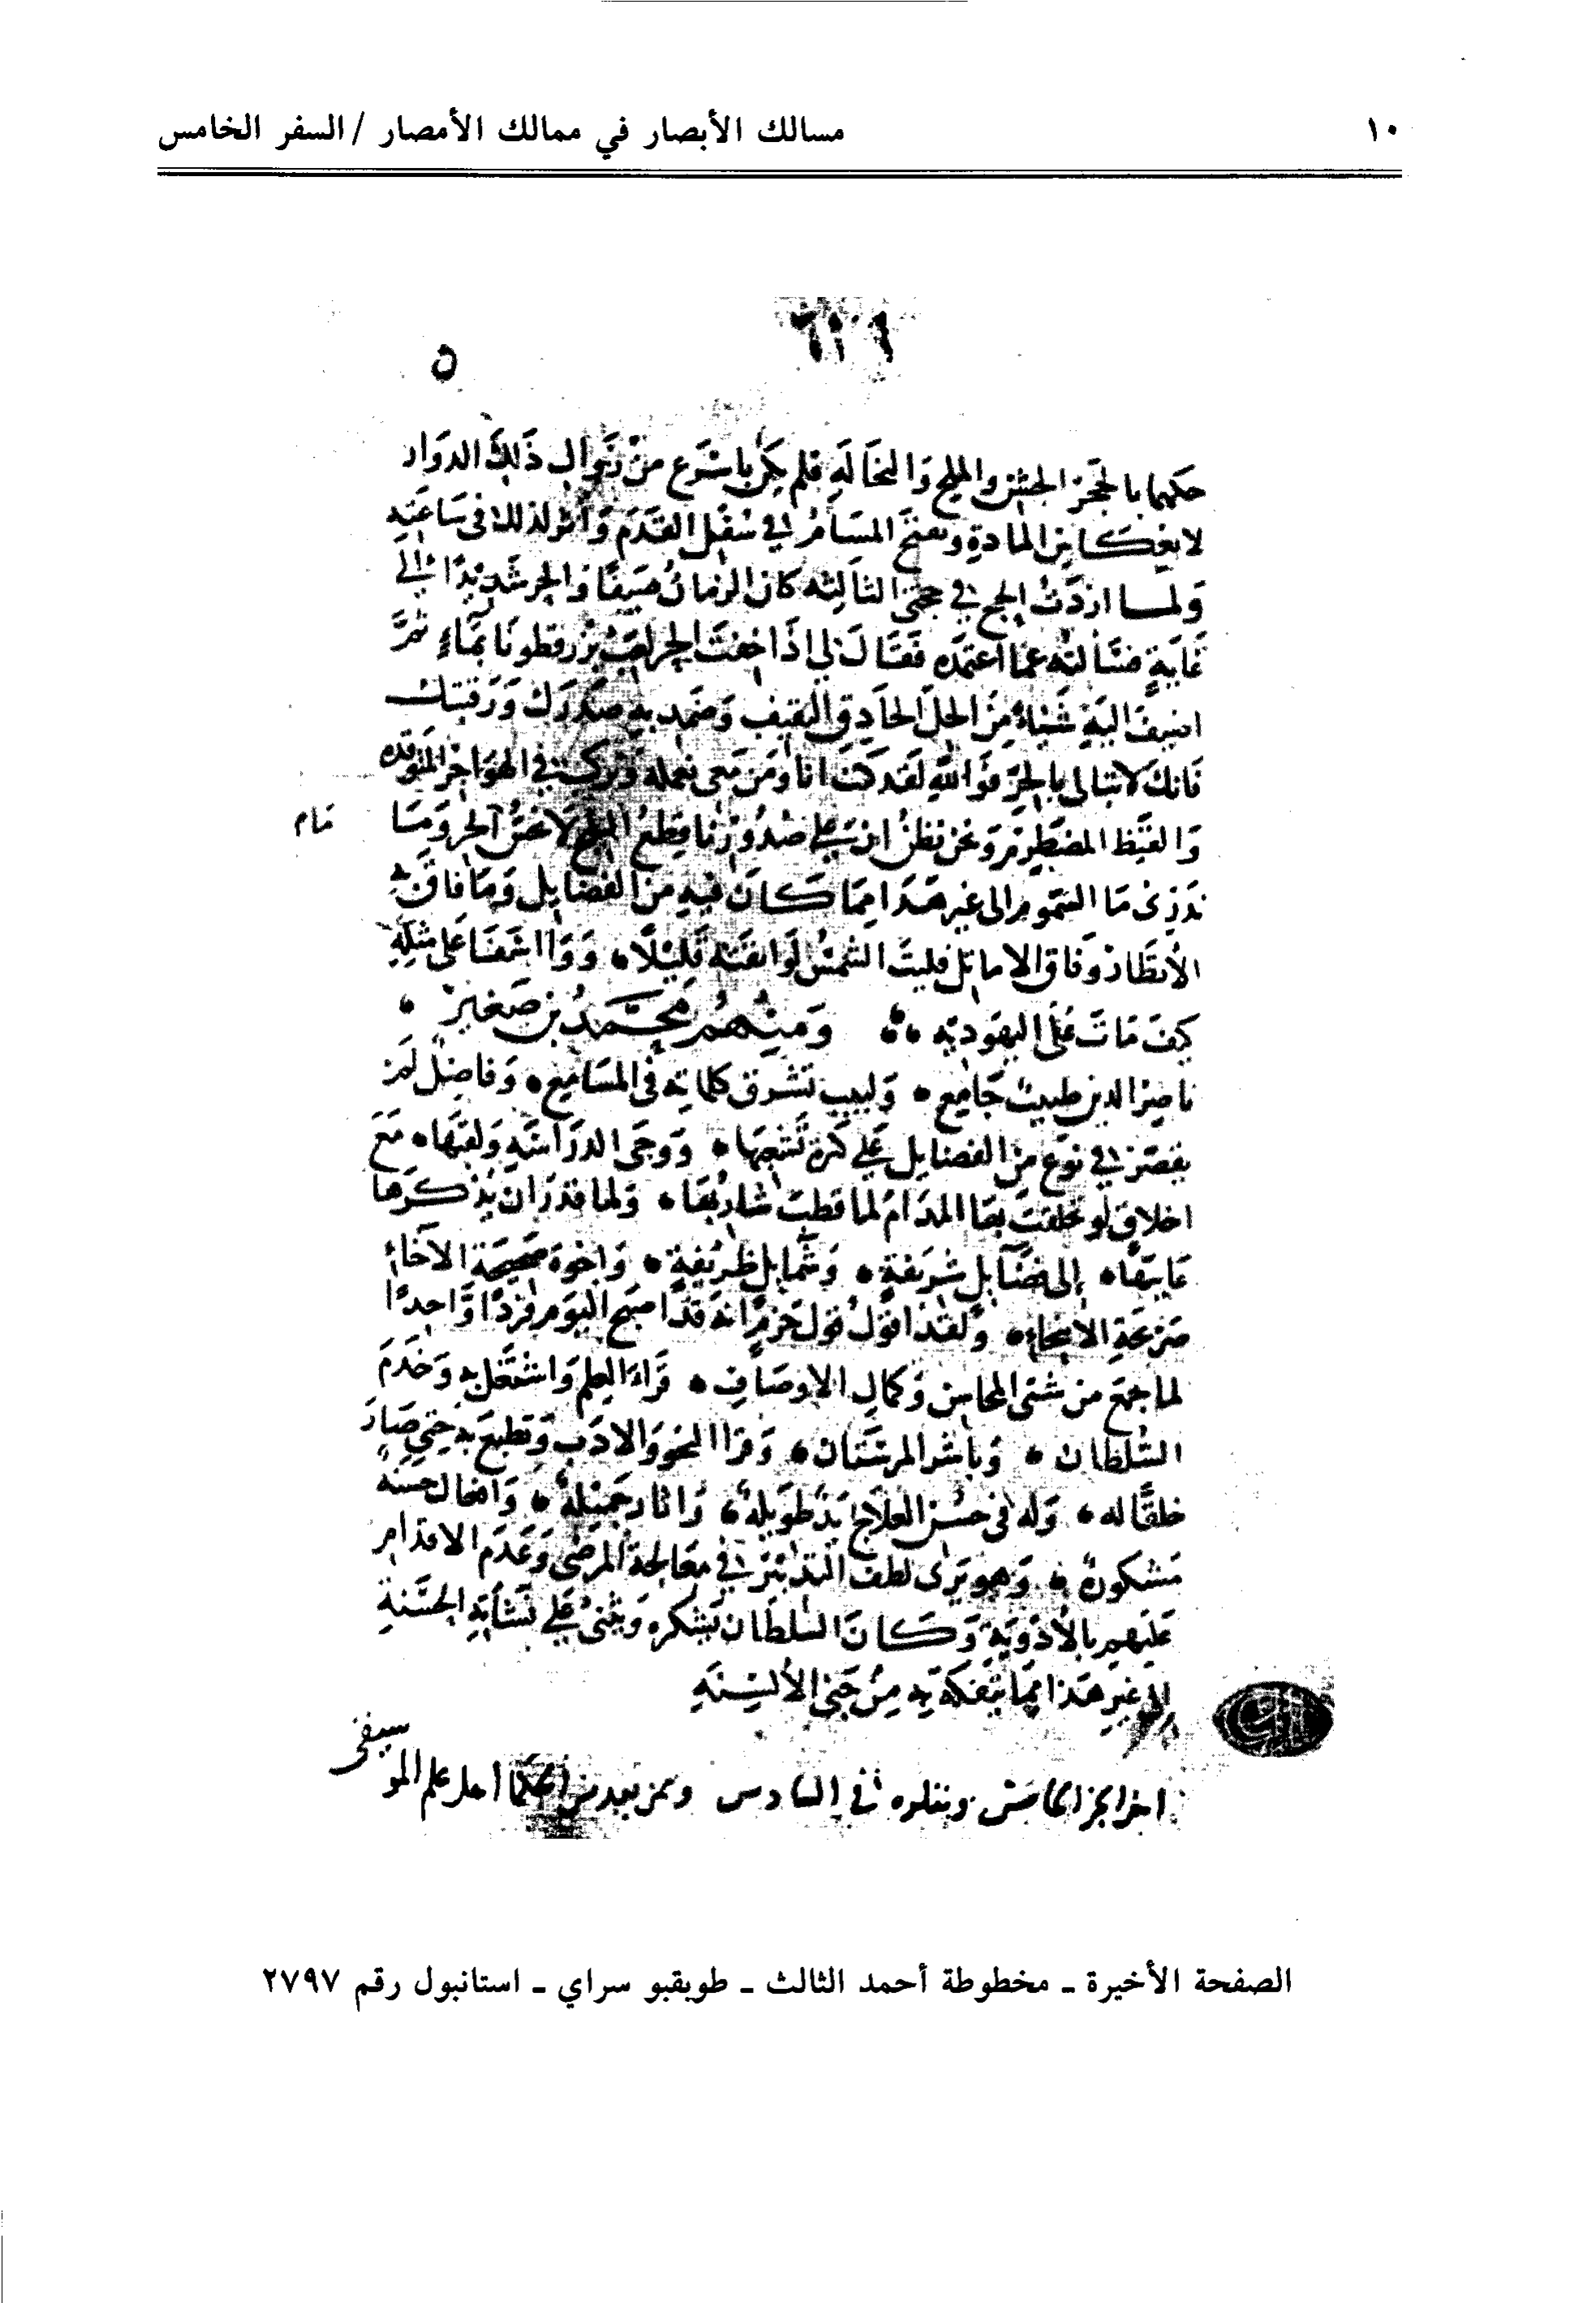 ١٠
مسالك الأبصار في ممالك الأمصار / السفر الخامس
٥
حكهما بالحجر الخشن والملح والنخالة فلم يكن باسرع من زوال ذلك الدوار
لانعكاس المادة وتفتح المسام في سفل القدم وأثر لذلك في ساعته
ولما اردت الحج في حجتي الثالثة كان الزمان صيفا والحر شديدا الى
غاية فسألته عما اعتمده فقال لي اذا خفت الحر لعب بزرقطونا بماء ثمر
اضيف اليه شياء من الخل الحاذق الثقيف وضمد به صدرك ورقبتك
فانك لا تبالى بالحر فوالله لقد كنت انا ومن معى نعمله ونركب في الهواجر المتوقده
والقيظ المضطرم ونحن نظن ان على صدورنا قطع الثلج لا نحس الحر وما
مام
ندرى ما السموم الى غير هذا مما كان فيه من الفضايل وما فاق به
الأنظار وفاق الاماثل فليت الشمس لو ابقته قليلا ووا اسفا على مثله
كيف مات على اليهودية ومنهم محمد بن صغير
ناصر الدين طبيب جامع ولبيب تشرق كلماته في المسامع وفاضل لم
يقصر في نوع من الفضايل على كثرة تشعبها ووجى الدراسة ولغبها مع
اخلاق لو تخلقت بها المدام لما قطبت شاربها ولما قدر ان يذكرها
عايبها الى فضآيل شريفة وشمايل ظريفة واخوة صحيحة الاخاء
صريحة الانتخاء ولقد اقول قول حزم انه قد اصبح اليوم فردا واحدا
لما جمع من شتى المحاسن وكمال الاوصاف قراء العلم واشتغل به وخدم
السلطان وباشر المرستان وقرا النحو والادب وتطبع به حتى صار
خلقا له وله في حسن العلاج يد طويلة واثار جميلة وافعال حسنة
مشكورة وهو يرى لطف التدبير في معالجة المرضى وعدم الاقدام
عليهم بالأدوية وكان السلطان يشكره ويثني على تشأيه الحسنة
الى غير هذا مما يتفكه به من جنى الألسنة
اخر الجز الخامس ويتلوه في السادس ومن بعد من الحكما اهل علم الموسيقى
الصفحة الأخيرة ـ مخطوطة أحمد الثالث ـ طوبقبو سراي ـ استانبول رقم ٢٧٩٧